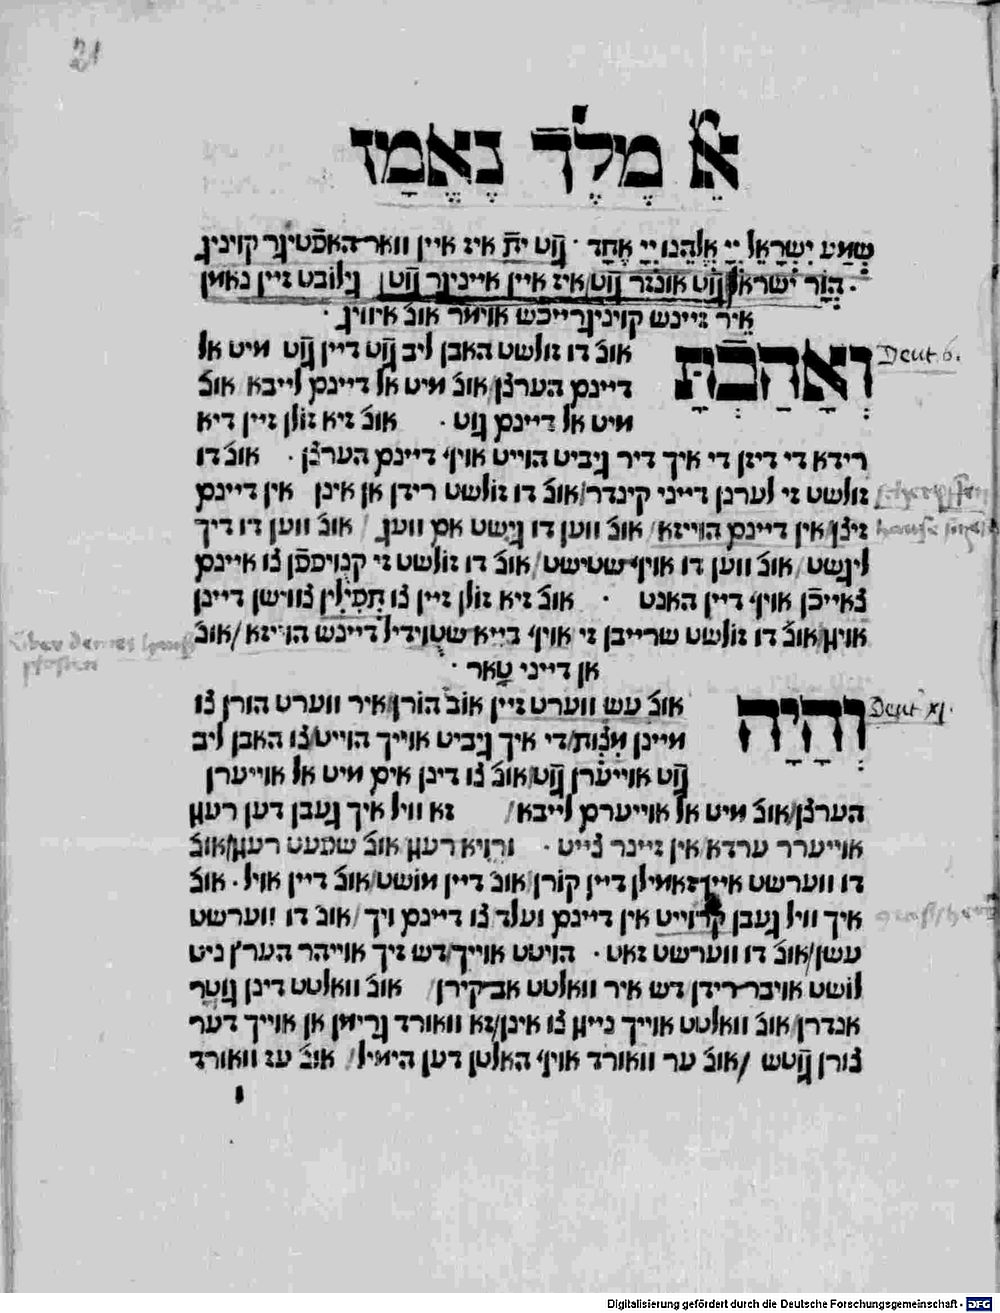 21
אֵל מֶלֶךְ נֶאֱמָן
שְׁמַע יִשְׂרָאֵל יְיָ אֱלֹהֵנוּ יְיָ אֶחָד · גוֹט ית֗ איז איין ווארהאפֿטיגר קויניג
· הוֹר יִשראל גוֹט אונזר גוֹט/איז איין אייניגר גוֹט גילובט זיין נאמן
איר זיינש קויניגרייכש אוימר אונ֗ איוויג ·
וְאָהַבְתָּ
Deut 6.
אונ֗ דו זולשט האבן ליב גוֹט דיין גוֹט מיט אל
דיינם הערצן/אונ֗ מיט אל דיינם לייבא/אונ֗
מיט אל דיינם גוט · אונ֗ זיא זולן זיין דיא
רידא די דיזן די איך דיר גיביט הוייט אויף דיינם הערצן · אונ֗ דו
זולשט זי לערנן דייני קינדר/אונ֗ דו זולשט רידן אן אינן אין דיינם
זיצן/אין דיינם הוייזא/אונ֗ ווען דו גישט אם וועג/ אונ֗ ווען דו דיך
ליגשט/אונ֗ ווען דו אויף שטישט/אונ֗ דו זולשט זי קנויפפֿן צו איינם
צאייכֿן אויף דיין האנט · אונ֗ זיא זולן זיין צו תפילין צווישן דיינן
אויגן/אונ֗ דו זולשט שרייבן זי אויף בייא שטוידיל דיינש הויזא/אונ֗
über deines hauß
pfosten
אן דייני טאר ·
וְהָיָה
Deut xj.
אונ֗ עש ווערט זיין אוֹב הוֹרן/איר ווערט הורן צו
מיינן מִצְוֹת/די איך גיביט אוייך הוייט/צו האבן ליב
גוֹט אוייערן גוֹט/אונ֗ צו דינן אים מיט אל אוייערן
הערצן/אונ֗ מיט אל אוייערם לייבא/ זא וויל איך געבן דען רעגן
אוייערר ערדא/אין זיינר צייט · ורויא רעגן אונ֗ שפעט רעגן/אונ֗
דו ווערשט איינזאמילן דיין קוֹרן/אונ֗ דיין מושט/אונ֗ דיין אויל · אונ֗
איך וויל געבן קרוייט אין דיינם ועלד צו דיינם ויך/אונ֗ דו ווערשט
עשן/אונ֗ דו ווערשט זאט · הויטט אוייך/דש זיך אוייהר הערץ ניט
לושט אויבררידן דש איר וואלטט אבקירן/ אונ֗ וואלטט דינן גוטר
אנדרן/אונ֗ וואלטט אוייך נייגן צו אינן/זא וואורד גרימן אן אוייך דער
צורן גוֹטש /אונ֗ ער וואורד אויף האלטן דען הימיל/ אונ֗ עז וואורד
Digitalisierung gefördert durch die Deutsche Forschungsgemeinschaft - DFG